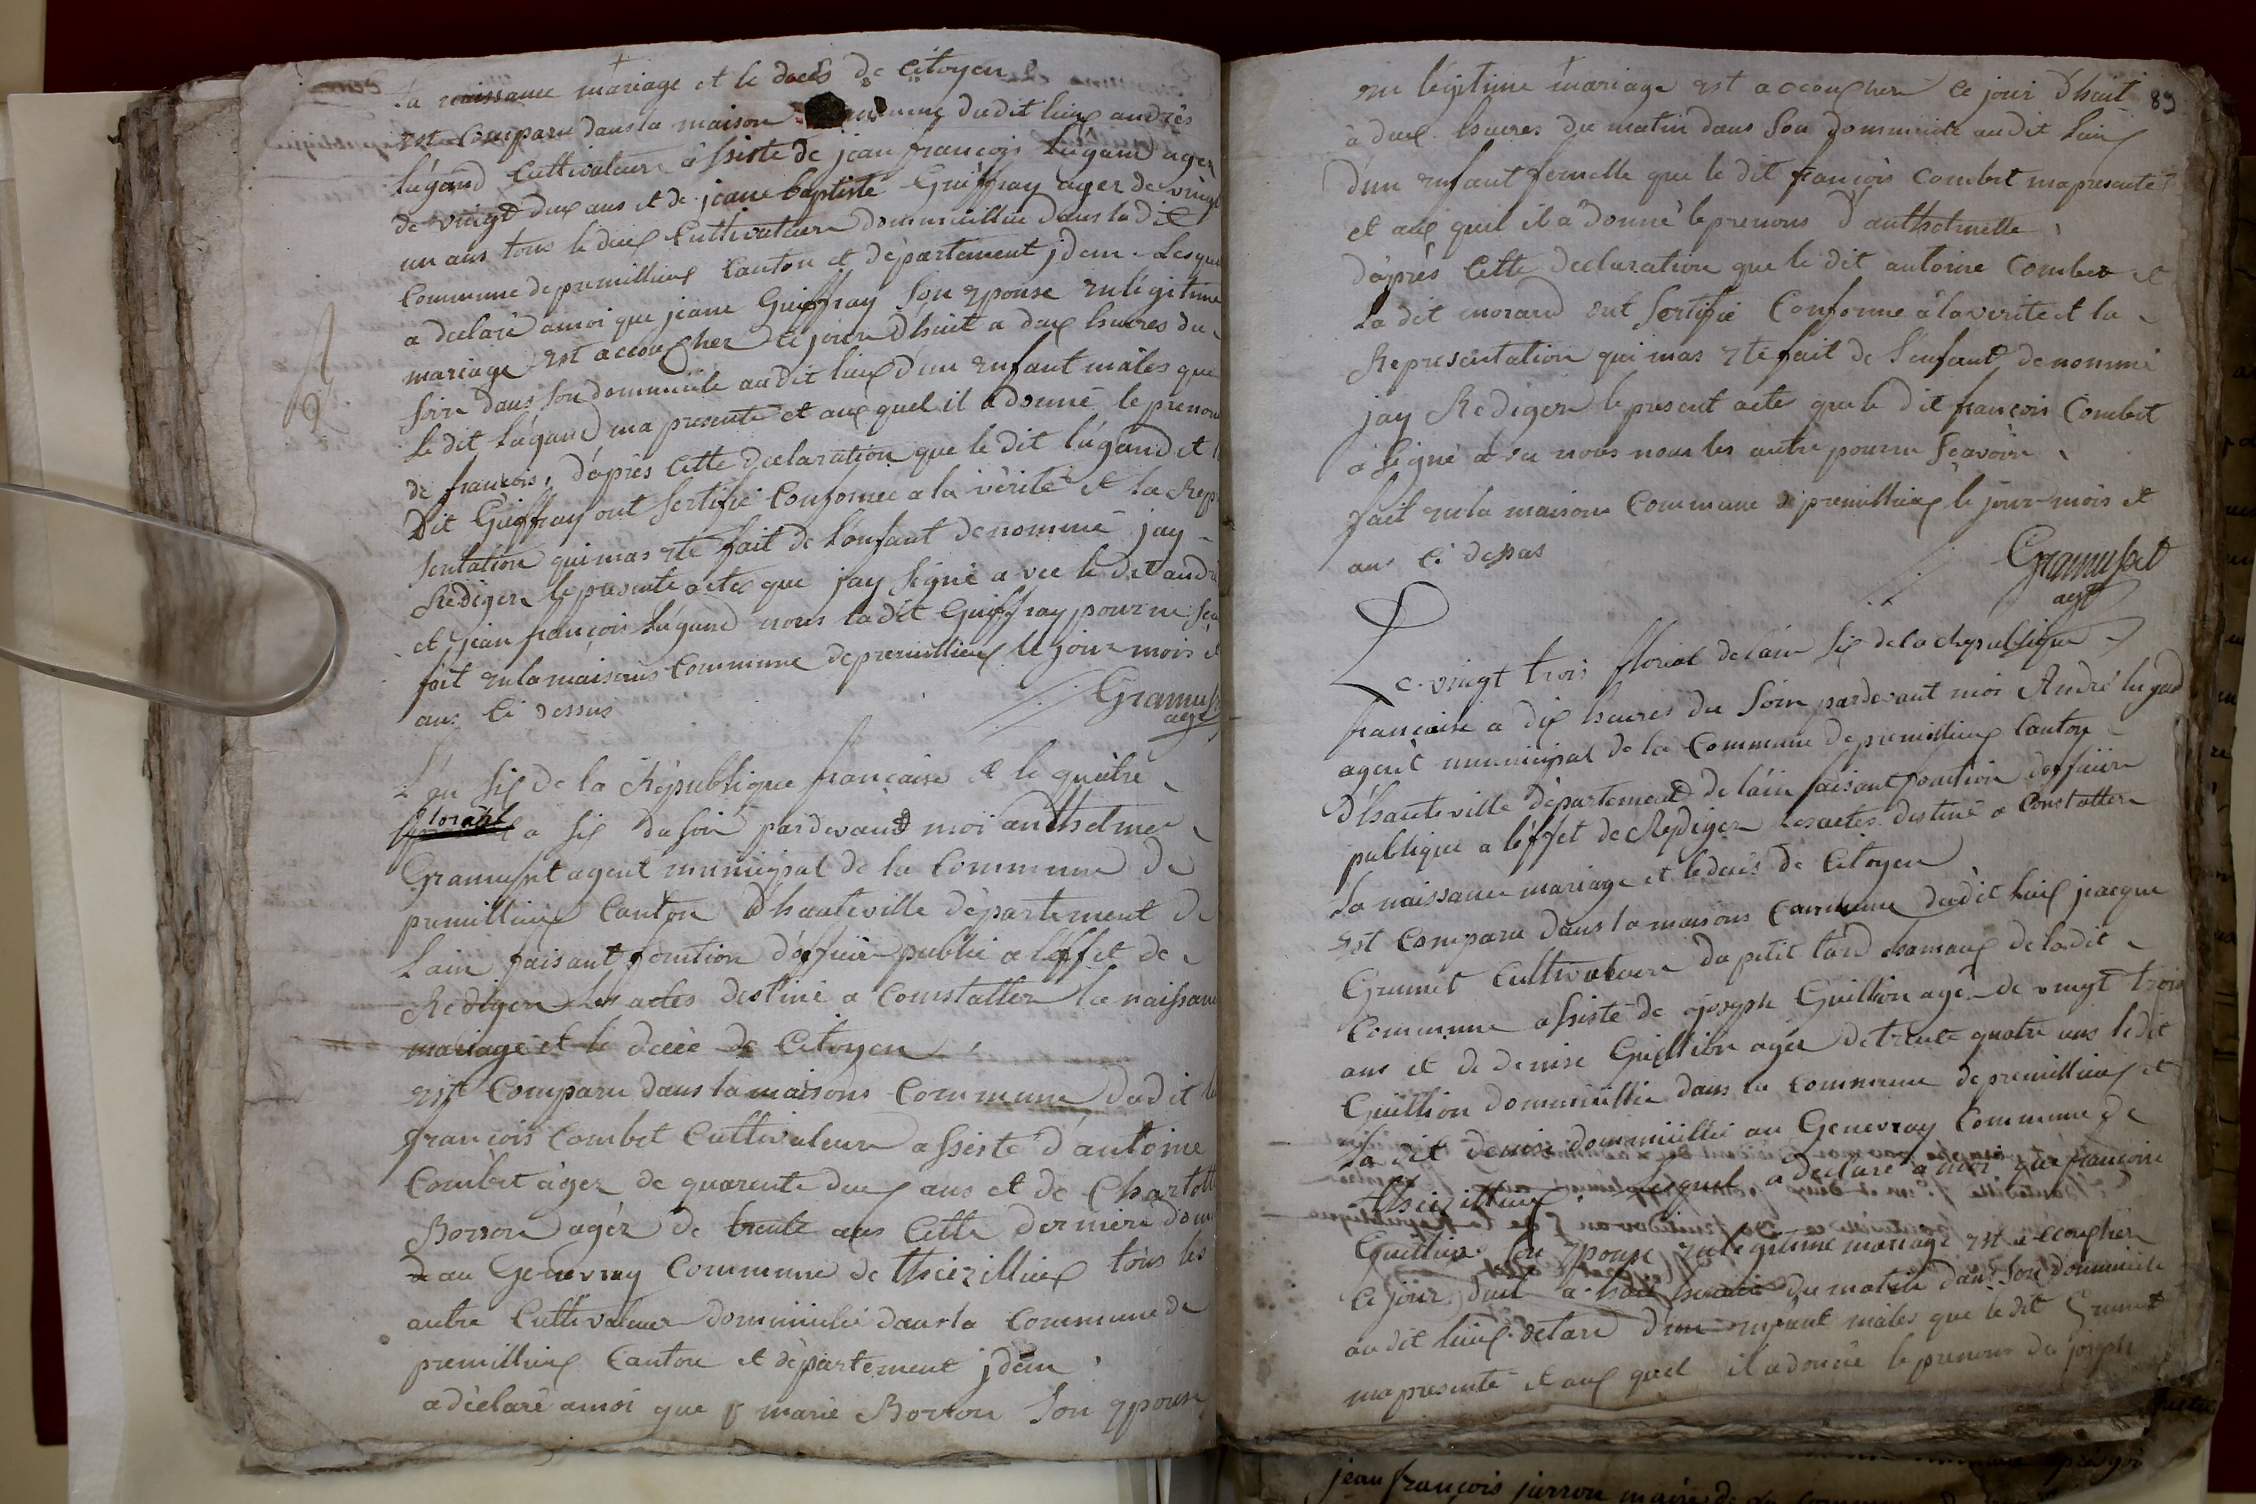 la naissance mariage et le decès de Citoyen
est Comparu dans la maison commune dudit lieux andrès
lugand Cultivateur assisté de jean françois lugand ager
de vingt deux ans et de jeane baptiste Guiffray ager de vingt
un ans tous le deux Cultivateur dommicillie dans la dit
Commune de premillieux Canton et département jdem - Lesque
a declaré amoi que jeane Guiffray Son epouse en légitime
mariage est accoucher ce jour d'huit a deux heures du
soir dans son dommicile au dit lieux d'un enfant mâles que
Le dit lugand ma presenté et aux quel il a donné le prenom
de françois, d'après Cette declaration que le dit lugand et l
Dit Guiffray ont Sertifié Conforme a la vérité et la Rep
sentation qui mas eté fait de l'enfant denommé jay
Rediger le presente acte que jay Signé avec le dit andré
et jean françois lugand nous ladit Guiffray pour ne sca
fait en la maisons Commune de premillieux le jour mois et
ans Ci dessus
Gramuss
agt
L'an Six de la République française & le quatre
floréal a six du soir pardevand moi anthelme
Gramusset agent municipal de la Commune de
premillieux Canton d'hauteville département de
L'ain faisant fonction d'officier public a l'effet de
Rediger les actes destiné a Constatter la naissance
mariage et le décè de Citoyen
est Comparu dans la maisons Commune dudit l
françois Combet Cultivateur assisté d'antoine
Combet âger de quarente deux ans et de Charlott
Borron agér de trente ans Cette derniere dom
de au Genevray Commune de theizillieux tous les
autre Cultivateur dommicilié dans la Commune de
premillieux Canton et département jdem
a déclaré amoi que marie Borron Son epouse
89
en legitime mariage est accoucher ce jour d'huit
à deux heures du matin dans Son dommicile audit Lieux
d'un enfant femelle que le dit françois Combet ma presenté
et aux quel il a donné le prenoms d'anthelmette
d'après Cette declaration que le dit antoine Combet et
La dit morand ont Sertifié Conforme a la verité et la
Représentation qui mas eté fait de l'enfant denommé
jay Rediger le present acte que le dit françois Combet
a Signé avec nous nous les autre pour ne Scavoir
fait en la maison Commune de premillieux le jour mois et
ans Ci depas
Gramusset
agt
Le vingt trois floreal de l'an Six de la Republique
française a dix heures du Soir pardevant moi André lugand
agent municipal de la Commune de premillieux Canton
d'hauteville département de l'ain faisant fonction d'officier
publique a l'effet de Rediger les actes destiné a Constatter
la naissance mariage et le decès de Citoyen
est Comparu dans la maisons Commune dudit lieux jacque
Grumet Cultivateur du petit tard hamaux de ladit
Commune assisté de joseph Guillion agé de vingt trois
ans et de denise Guillion agér de trente quatre ans le dit
Guillion dommicillié dans la Commune de premillieux et
La dit denise dommicillié au Genevray Commune de
theizillieux. Lesquel a declaré a moi que françoise
Guillion Son epouse en legitime mariage est accoucher
Ce jour duit a huit heures du matin dans Son dommicile
au dit lieux de tard d'un enfant mâles que le dit Grumet
ma presenté et aux quel il a donné le prenom de joseph
jean françois